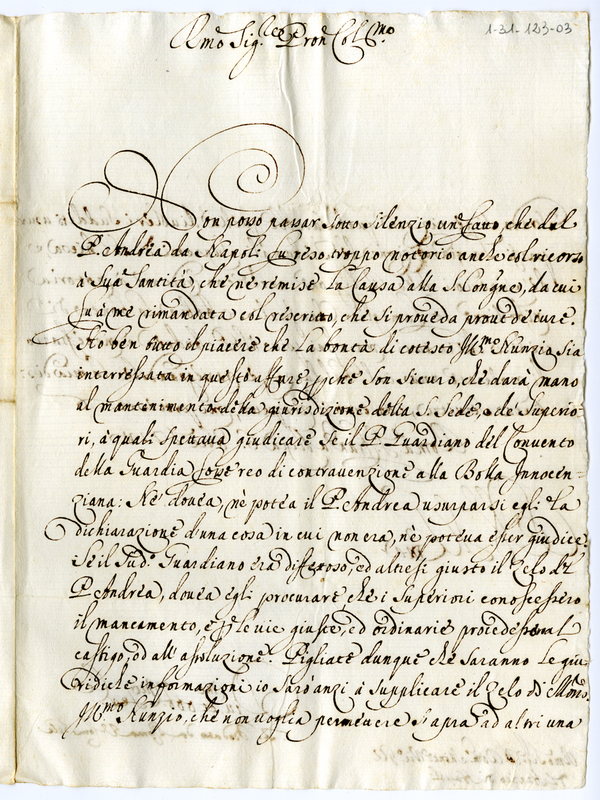 1-31-123-03
Rmo Sig.re Pron Col.mo
Non posso passar sotto silenzio un fatto, che dal
P. Andrea da Napoli fu reso troppo notorio anche col ricorso
à Sua Santità, che nè remise la Causa alla S. Congne, da cui
fu à me rimandata col rescritto, che si proueda prout de iure.
Ho ben tutto il piacere che la bontà di cotesto M.mo Nunzio sia
interressata in questo affare, pche son sicuro, che darà mano
al mantenimento della giurisdizione della S. Sede, e de Superio-
ri, à quali spettaua giudicare se il P. Guardiano del Conuento
della Guardia fosse reo di contravenzione alla Bolla Innocen-
ziana: Nè douea, nè potea il P. Andrea usurparsi egli la
dichiarazione d'una cosa in cui non era, nè poteua esser giudice.
Se il Sud.o Guardiano era difettoso, ed altresi giusto il zelo del
P. Andrea, douea egli procurare che i Superiori conoscessero
il mancamento, e p le uie giuste, ed ordinarie procedessero al
castigo, od all'assoluzione. Pigliate dunque che saranno le giu-
ridiche informazioni io sarò anzi à supplicare il zelo di
M.mo Nunzio, che non uoglia permettere s'apra ad altri una